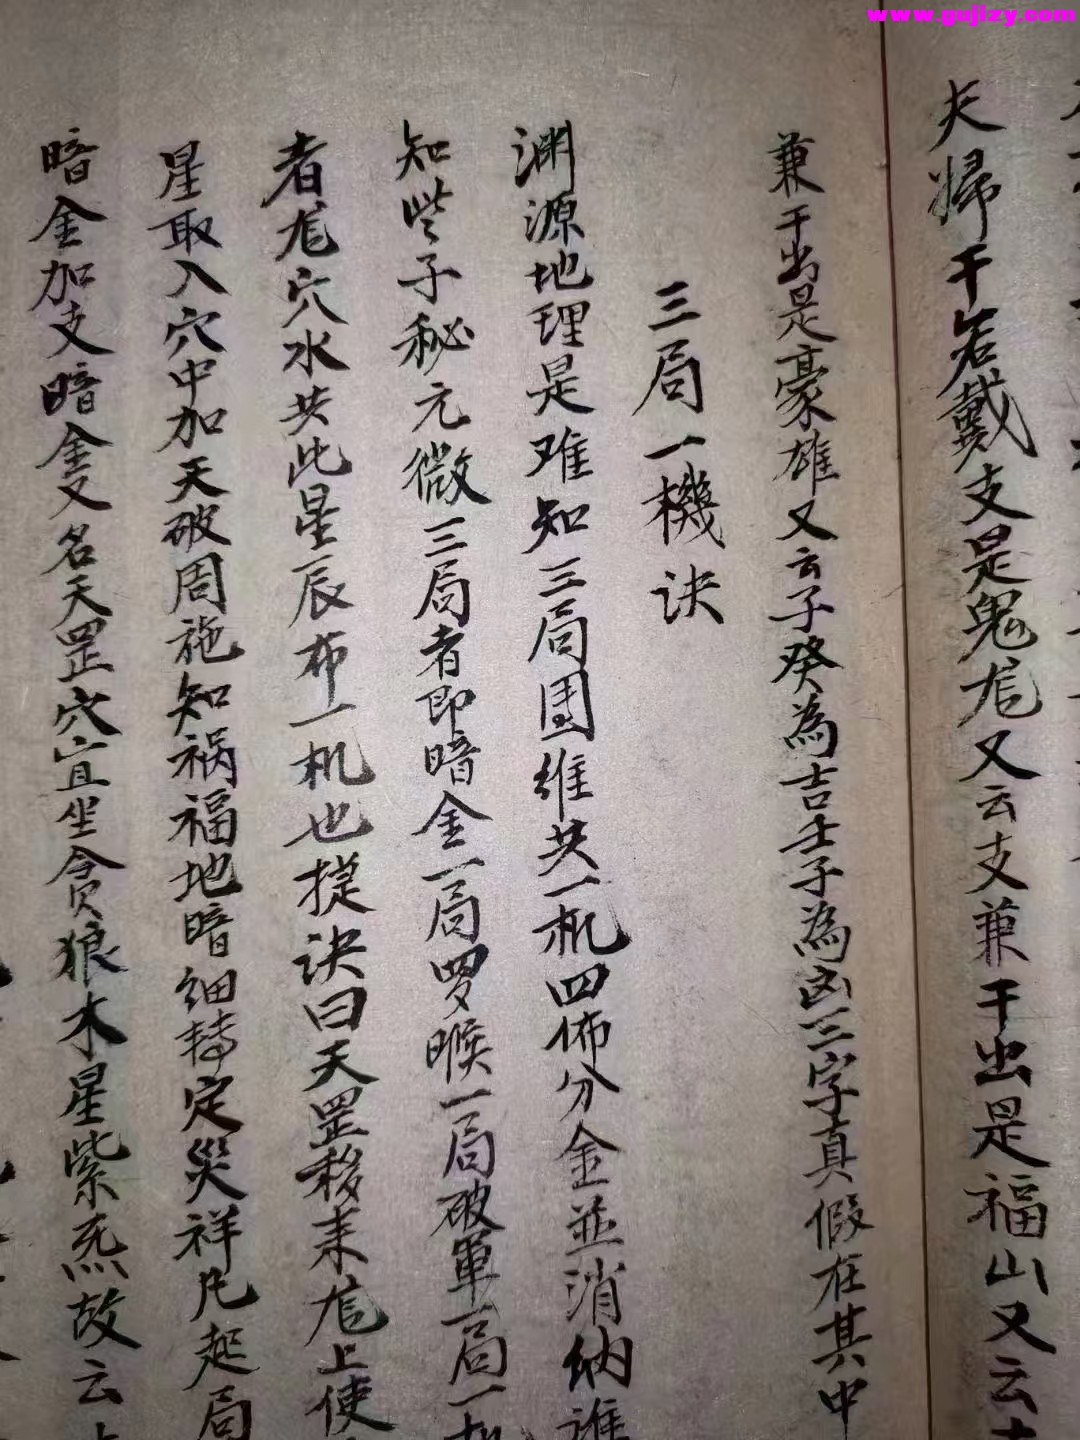 www.gujizy.com
夫婦干若戴支是鬼龙又云支兼干出是福山又云
兼干出是豪雄又云子癸為吉壬子為凶三字真假在其中
三局一機诀
渊源地理是难知三局围维共一机四佈分金並消纳谁
知些子秘元微三局者即暗金一局罗睺一局破軍一局一机
者龙穴水共此星辰布一机也提诀曰天罡移来龙上使
星取入穴中加天破周施知祸福地暗细转定災祥凡起局
暗金加支暗金又名天罡穴宜坐贪狼木星紫炁故云